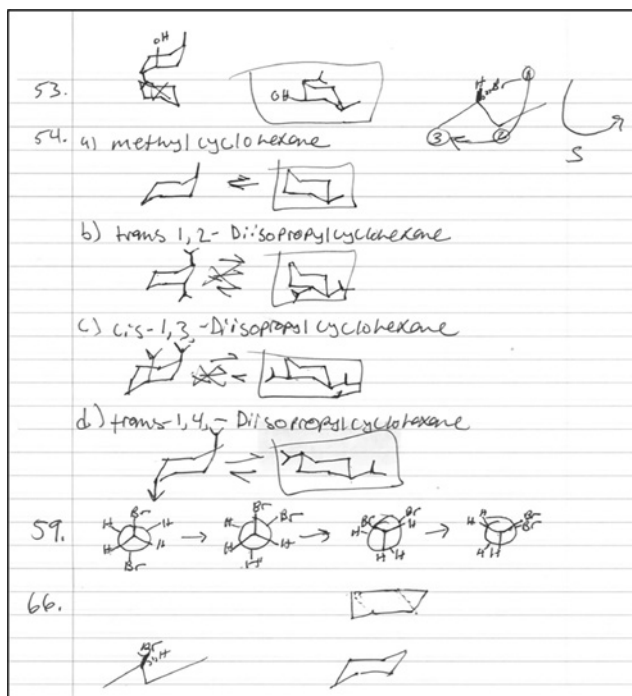 OH
53.
OH
H
Br
1
3
2
S
54. a) methylcyclohexane
b) trans 1,2-Diisopropylcyclohexane
c) cis-1,3,-Diisopropylcyclohexane
d) trans-1,4,-Diisopropylcyclohexane
59.
Br H H H H Br
Br Br H H H H
Br Br H H H H
H H Br Br H H
66.
Br
H